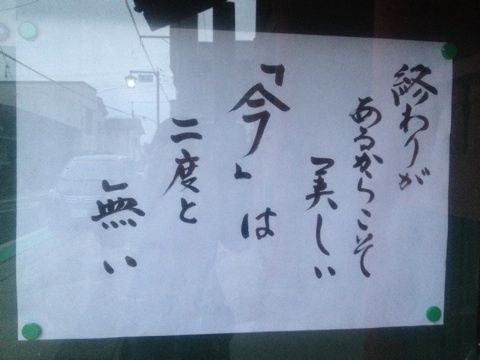 終わりが
あるからこそ
美しい
「今」は
二度と
無い